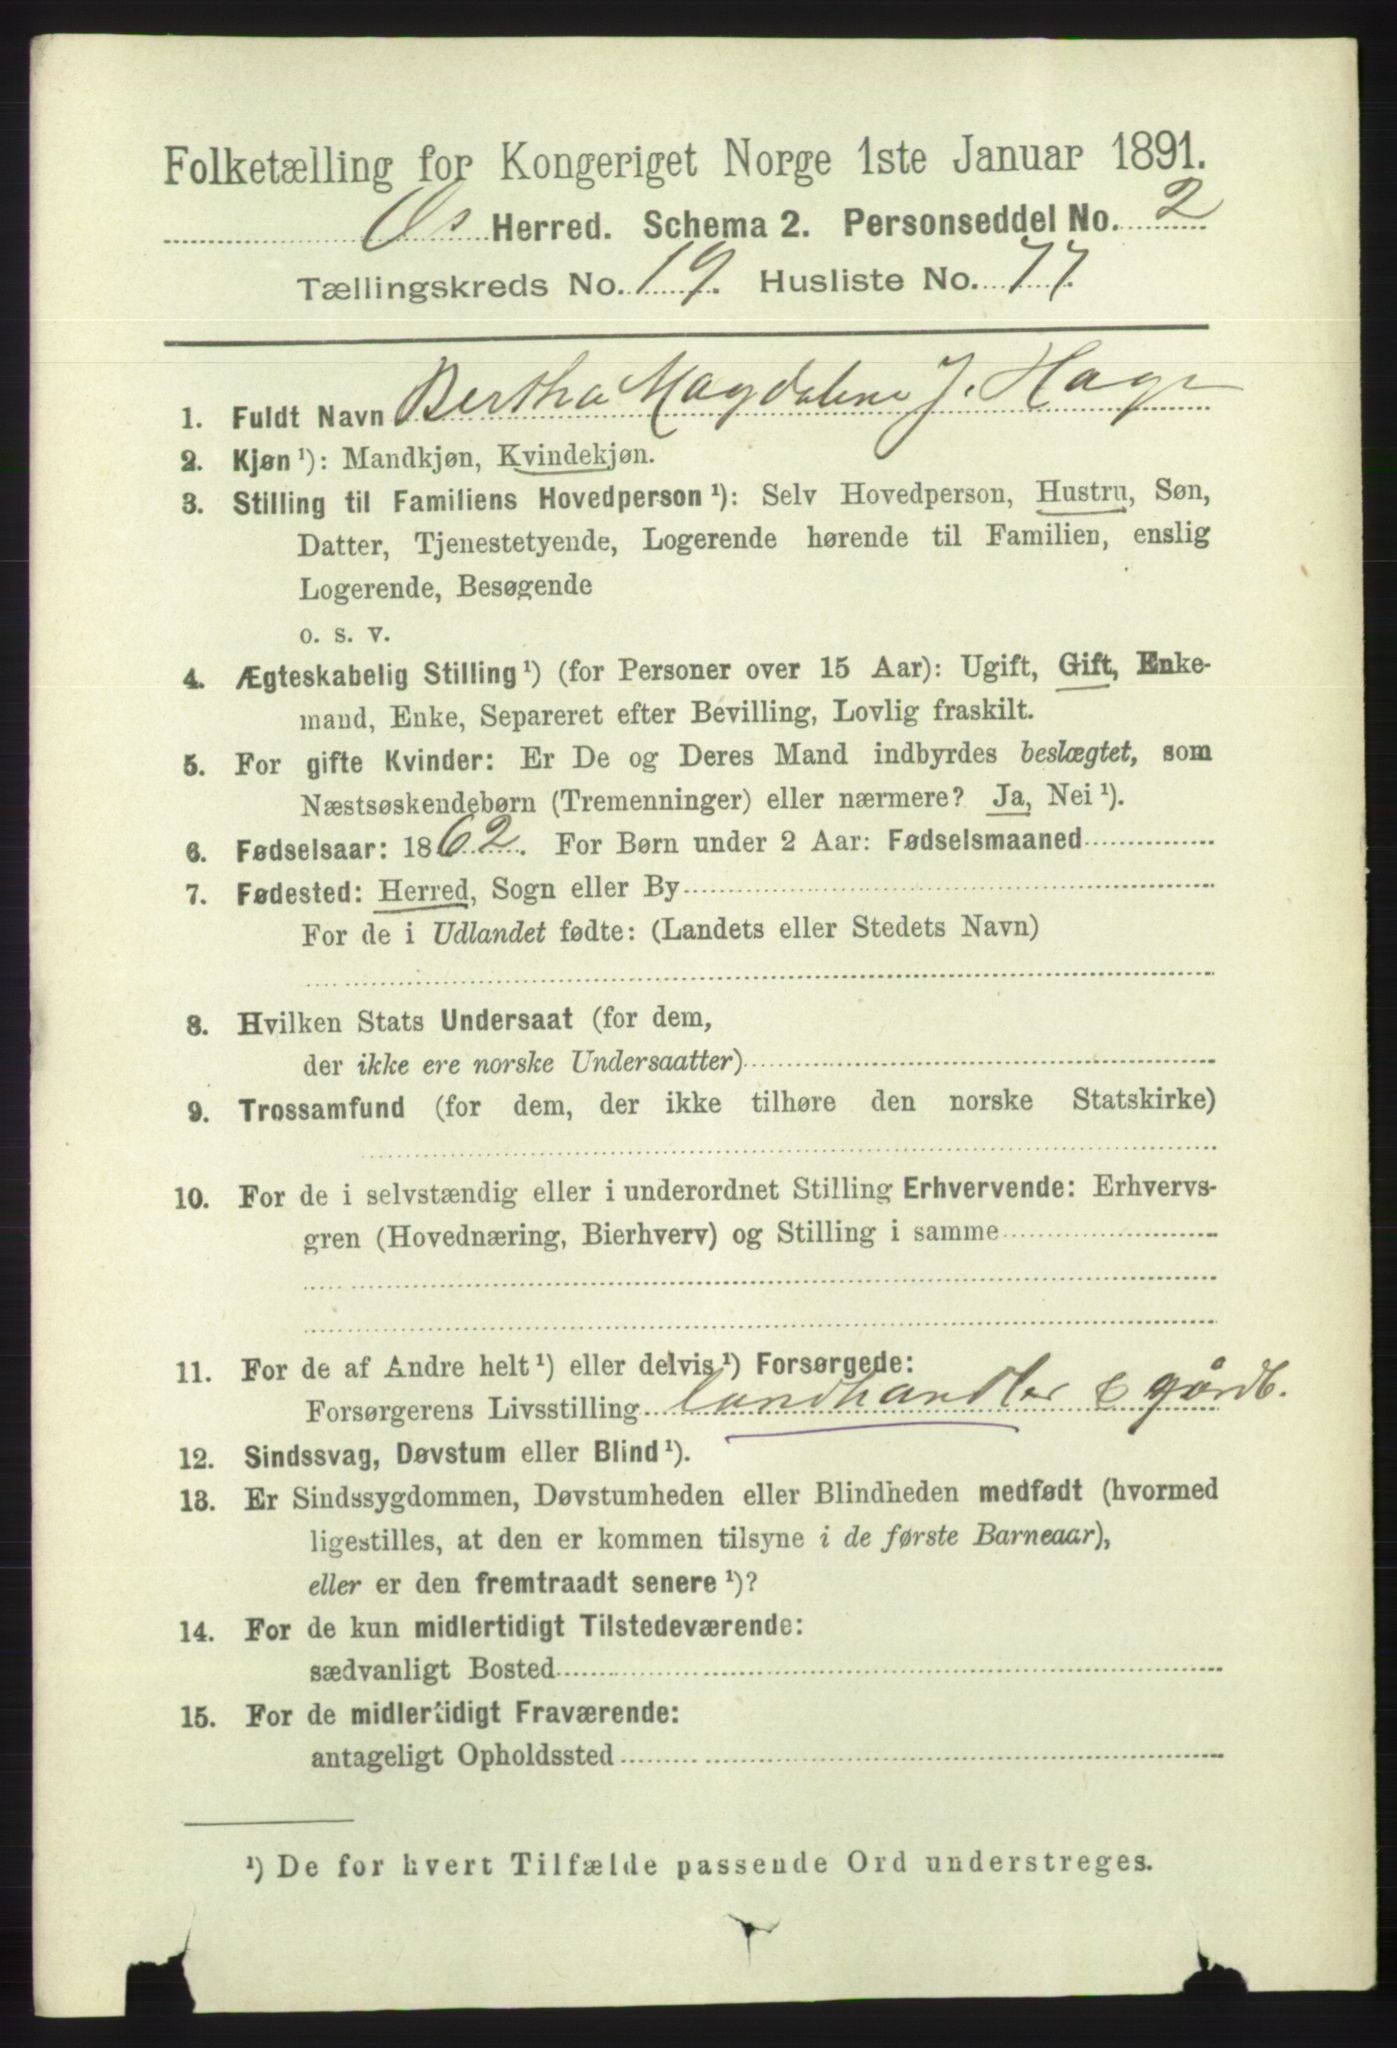 Folketælling for Kongeriget Norge 1ste Januar 1891.
Os Herred. Schema 2. Personseddel No. 2
Tællingskreds No. 19. Husliste No. 77.
1. Fuldt Navn Bertha Magdalene J. Hage
2. Kjøn ¹): Mandkjøn, Kvindekjøn.
3. Stilling til Familiens Hovedperson ¹): Selv Hovedperson, Hustru, Søn,
Datter, Tjenestetyende, Logerende hørende til Familien, enslig
Logerende, Besøgende
o. s. v.
4. Ægteskabelig Stilling ¹) (for Personer over 15 Aar): Ugift, Gift, Enke-
mand, Enke, Separeret efter Bevilling, Lovlig fraskilt.
5. For gifte Kvinder: Er De og Deres Mand indbyrdes beslægtet, som
Næstsøskendebørn (Tremenninger) eller nærmere? Ja, Nei ¹).
6. Fødselsaar: 1862. For Børn under 2 Aar: Fødselsmaaned
7. Fødested: Herred, Sogn eller By
For de i Udlandet fødte: (Landets eller Stedets Navn)
8. Hvilken Stats Undersaat (for dem,
der ikke ere norske Undersaatter)
9. Trossamfund (for dem, der ikke tilhøre den norske Statskirke)
10. For de i selvstændig eller i underordnet Stilling Erhvervende: Erhvervs-
gren (Hovednæring, Bierhverv) og Stilling i samme
11. For de af Andre helt ¹) eller delvis ¹) Forsørgede:
Forsørgerens Livsstilling landhandler & gårdb.
12. Sindssvag, Døvstum eller Blind ¹).
13. Er Sindssygdommen, Døvstumheden eller Blindheden medfødt (hvormed
ligestilles, at den er kommen tilsyne i de første Barneaar),
eller er den fremtraadt senere ¹)?
14. For de kun midlertidigt Tilstedeværende:
sædvanligt Bosted
15. For de midlertidigt Fraværende:
antageligt Opholdssted
¹) De for hvert Tilfælde passende Ord understreges.